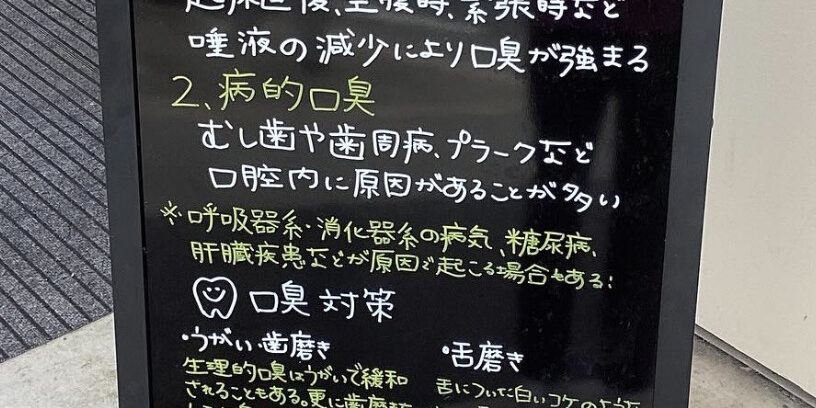 起床直後、空腹時、緊張時など
唾液の減少により口臭が強まる
2、病的口臭
むし歯や歯周病、プラークなど
口腔内に原因があることが多い
※呼吸器系・消化器系の病気、糖尿病、
肝臓疾患などが原因で起こる場合もある!
口臭対策
・うがい歯磨き
・舌磨き
生理的口臭はうがいで緩和
されることもある。更に歯磨きを
舌についた白いコケのような